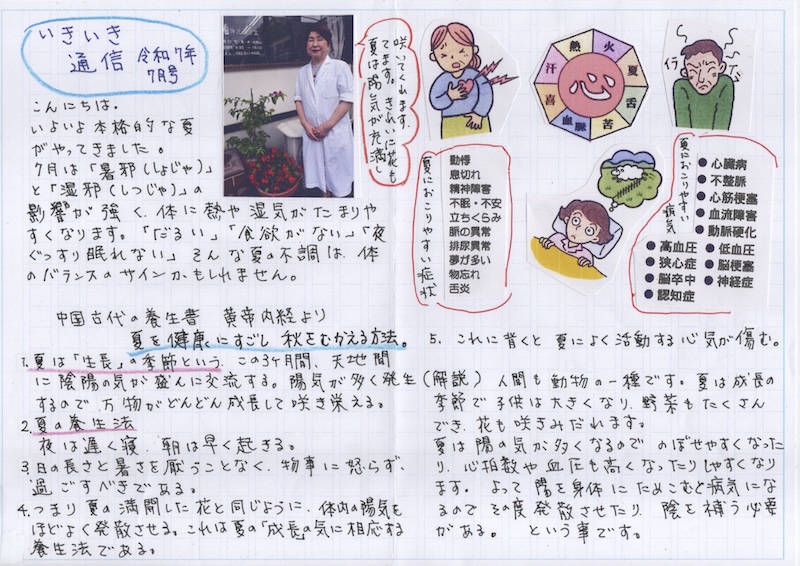 いきいき
通信 令和7年
7月号
こんにちは。
いよいよ本格的な夏
がやってきました。
7月は「暑邪(しょじゃ)」
と「湿邪(しつじゃ)」の
影響が強く、体に熱や湿気がたまりや
すくなります。「だるい」「食欲がない」「夜
ぐっすり眠れない」そんな夏の不調は、体
のバランスのサインかもしれません。
咲いてくれます。
てます。きれいに花も
夏は陽気が充満し
熱
火
夏
舌
苦
血脈
喜
汗
心
イライラ
夏におこりやすい症状
動悸
息切れ
精神障害
不眠・不安
立ちくらみ
脈の異常
排尿異常
夢が多い
物忘れ
舌炎
夏におこりやすい
病気
●心臓病
●不整脈
●心筋梗塞
●血流障害
●動脈硬化
●高血圧 ●低血圧
●狭心症 ●脳梗塞
●脳卒中 ●神経症
●認知症
中国古代の養生書 黄帝内経より
夏を健康にすごし 秋をむかえる方法。
1.夏は「生長」の季節という。この3ヶ月間、天地間
に陰陽の気が盛んに交流する。陽気が多く発生
するので万物がどんどん成長して咲き栄える。
2.夏の養生法
夜は遅く寝、朝は早く起きる。
3日の長さと暑さを厭うことなく、物事に怒らず、
過ごすべきである。
4.つまり夏の満開した花と同じように、体内の陽気を
ほどよく発散させる。これは夏の「成長」の気に相応する
養生法である。
5. これに背くと夏によく活動する心気が傷む。
(解説) 人間も動物の一種です。夏は成長の
季節で子供は大きくなり、野菜もたくさん
でき、花も咲きみだれます。
夏は陽の気が多くなるので のぼせやすくなった
り、心拍数や血圧も高くなったりしやすくなり
ます。よって陽を身体にためこむと病気にな
るのでその度発散させたり、陰を補う必要
がある。 という事です。